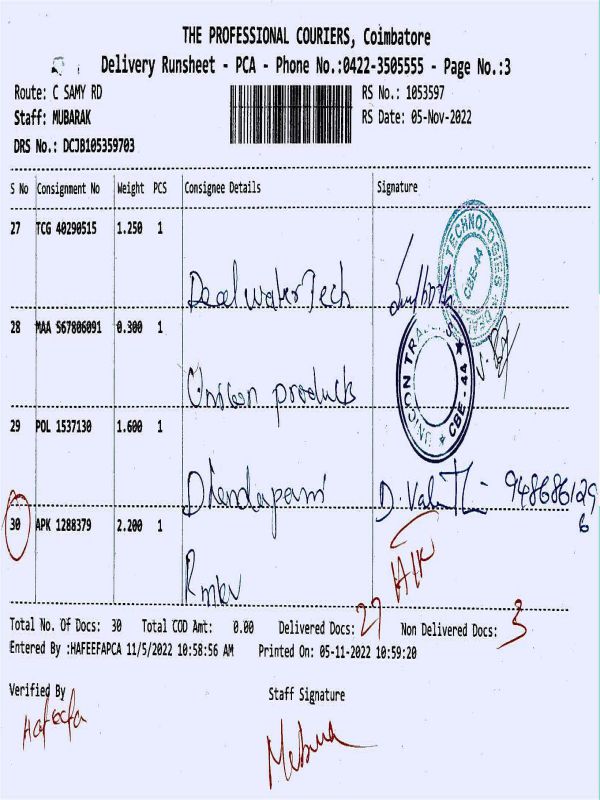 THE PROFESSIONAL COURIERS, Coimbatore
Delivery Runsheet - PCA - Phone No.:0422-3505555 - Page No.:3
Route: C SAMY RD
RS No.: 1053597
Staff: MUBARAK
RS Date: 05-Nov-2022
DRS No.: DCJB105359703
S No Consignment No Weight PCS Consignee Details Signature
27 TCG 40290515 1.250 1
Deeal water Tech
TECHNOLOGIES
CBE-44
28 MAA 567806091 0.300 1
Unicon products
UNICON TRA
CBE - 44
29 POL 1537130 1.600 1
Dhandapani D. Val 948686129
6
30 APK 1288379 2.200 1
Rmkv
Total No. Of Docs: 30 Total COD Amt: 0.00 Delivered Docs: 27 Non Delivered Docs: 3
Entered By :HAFEEFAPCA 11/5/2022 10:58:56 AM Printed On: 05-11-2022 10:59:20
Verified By Staff Signature
Hafeefa